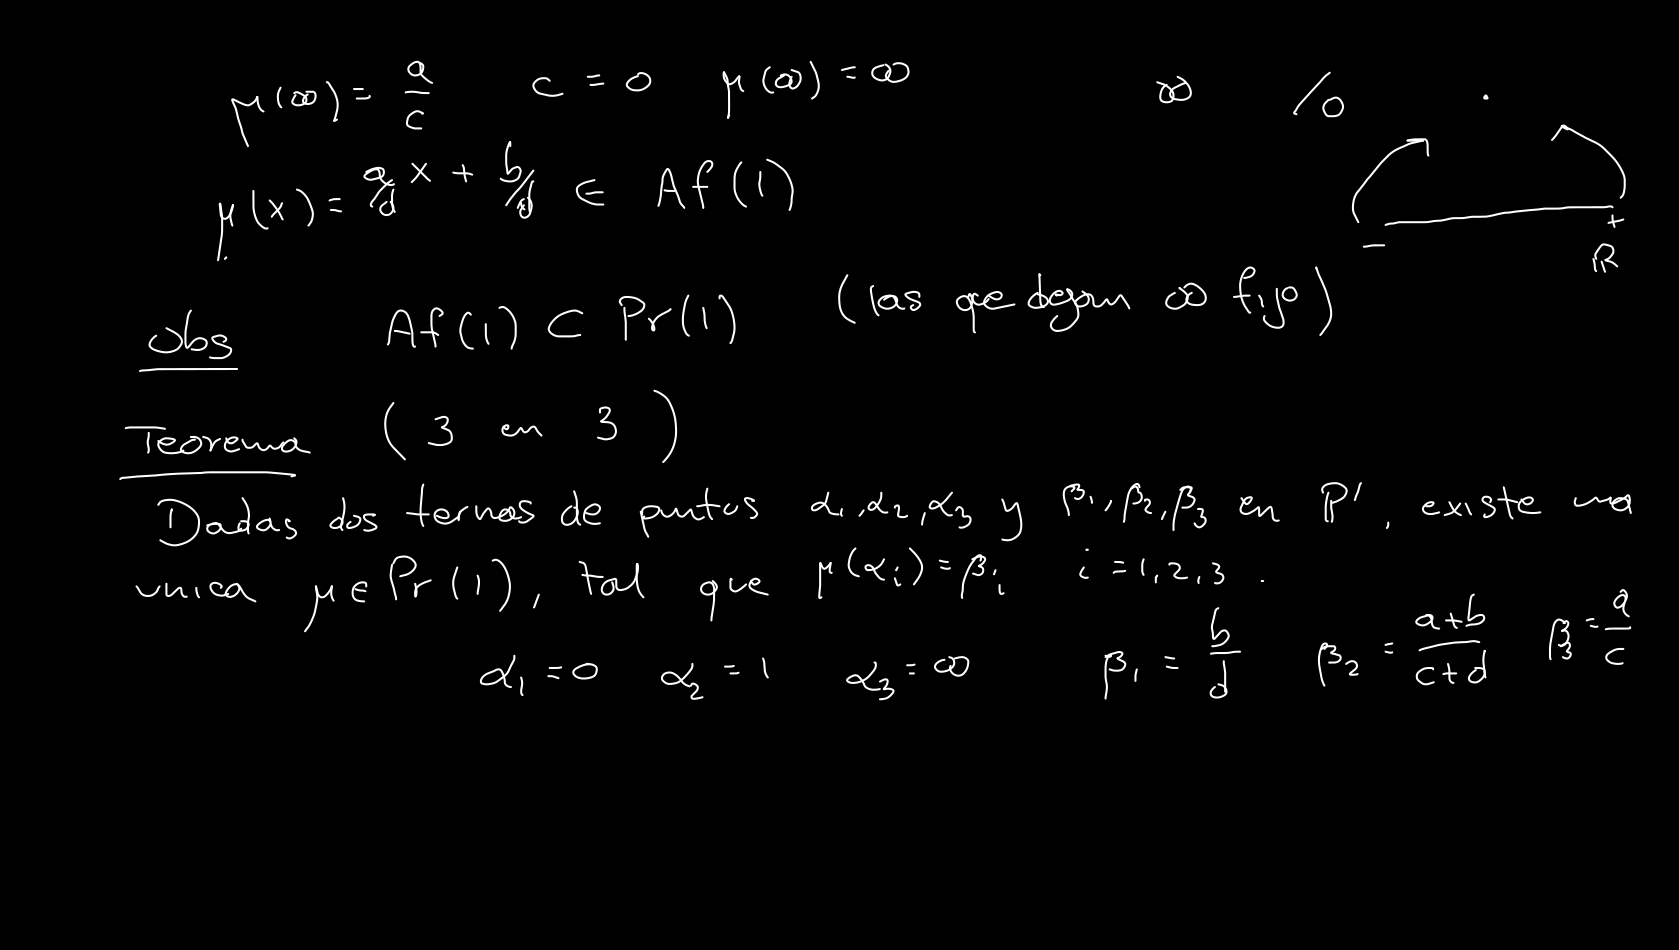 μ(∞) = a/c   c = 0   μ(∞) = ∞   ∞   /0
μ(x) = a/d x + b/d ∈ Af(1)
− + 
ℝ
Obs   Af(1) ⊂ Pr(1)   (las que dejan ∞ fijo)
Teorema   (3 en 3)
Dadas dos ternas de puntos α1, α2, α3 y β1, β2, β3 en P', existe una
unica μ ∈ Pr(1), tal que μ(αi) = βi   i = 1, 2, 3.
α1 = 0   α2 = 1   α3 = ∞   β1 = b/d   β2 = a+b/c+d   β3 = a/c